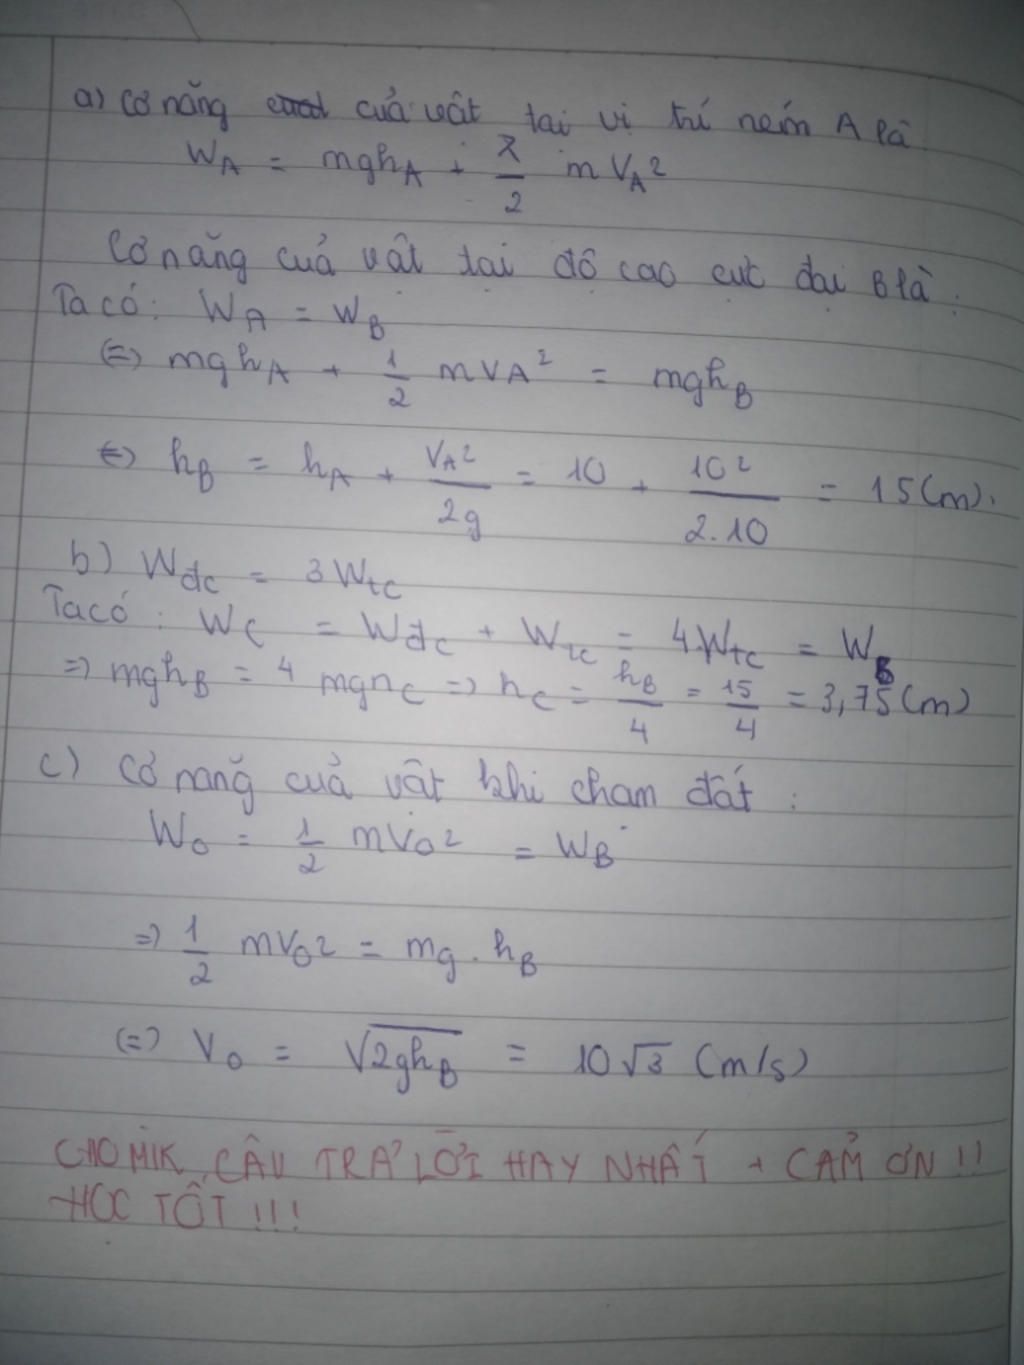 a) Cơ năng của vật tại vị trí ném A là
W_A = mgh_A + 1/2 m V_A²
Cơ năng của vật tại độ cao cực đại B là:
Ta có: W_A = W_B
(=) mgh_A + 1/2 mV_A² = mgh_B
(=) h_B = h_A + V_A²/2g = 10 + 10²/2.10 = 15(m).
b) W_đc = 3W_tc
Ta có: W_C = W_đc + W_tc = 4.W_tc = W_B
=> mgh_B = 4 mgh_C => h_C = h_B/4 = 15/4 = 3,75(m)
c) Cơ năng của vật khi chạm đất:
W_0 = 1/2 mV_0² = W_B
=> 1/2 mV_0² = mg.h_B
(=) V_0 = √2gh_B = 10√3 (m/s)
CHO MIK CÂU TRẢ LỜI HAY NHẤT + CẢM ƠN!!
HỌC TỐT!!!